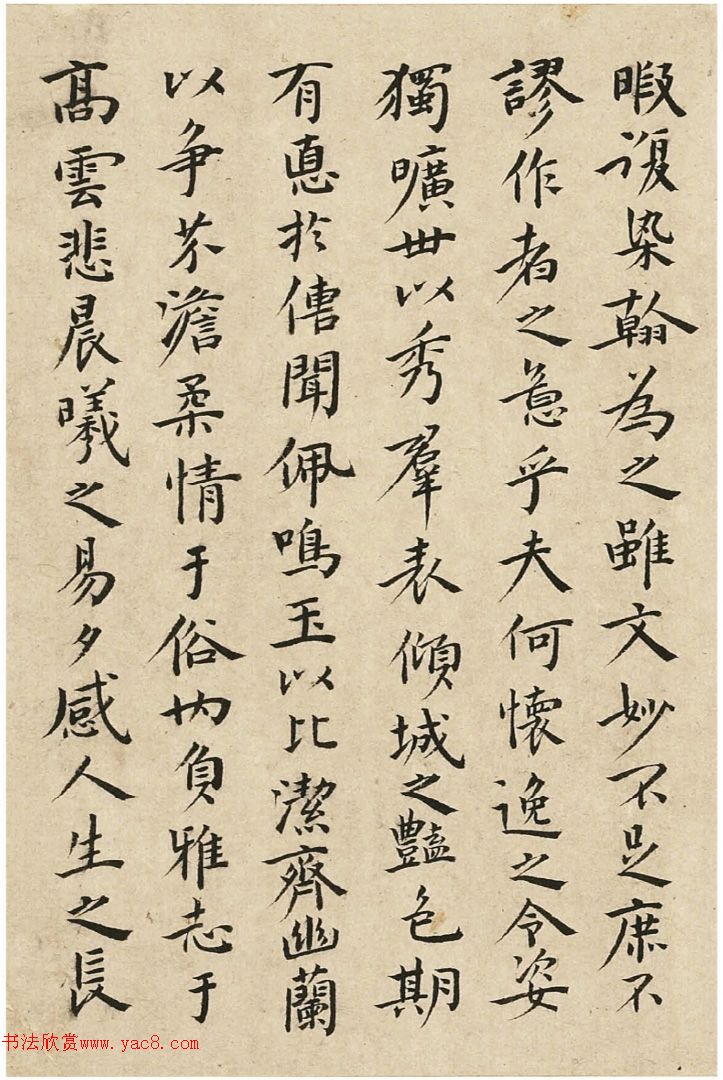 暇復染翰為之雖文妙不足庶不
謬作者之意乎夫何懷逸之令姿
獨曠世以秀羣表傾城之豔色期
有悳於傳聞佩鳴玉以比潔齊幽蘭
以争芬澹柔情于俗内負雅志于
高雲悲晨曦之易夕感人生之長
书法欣赏www.yac8.com